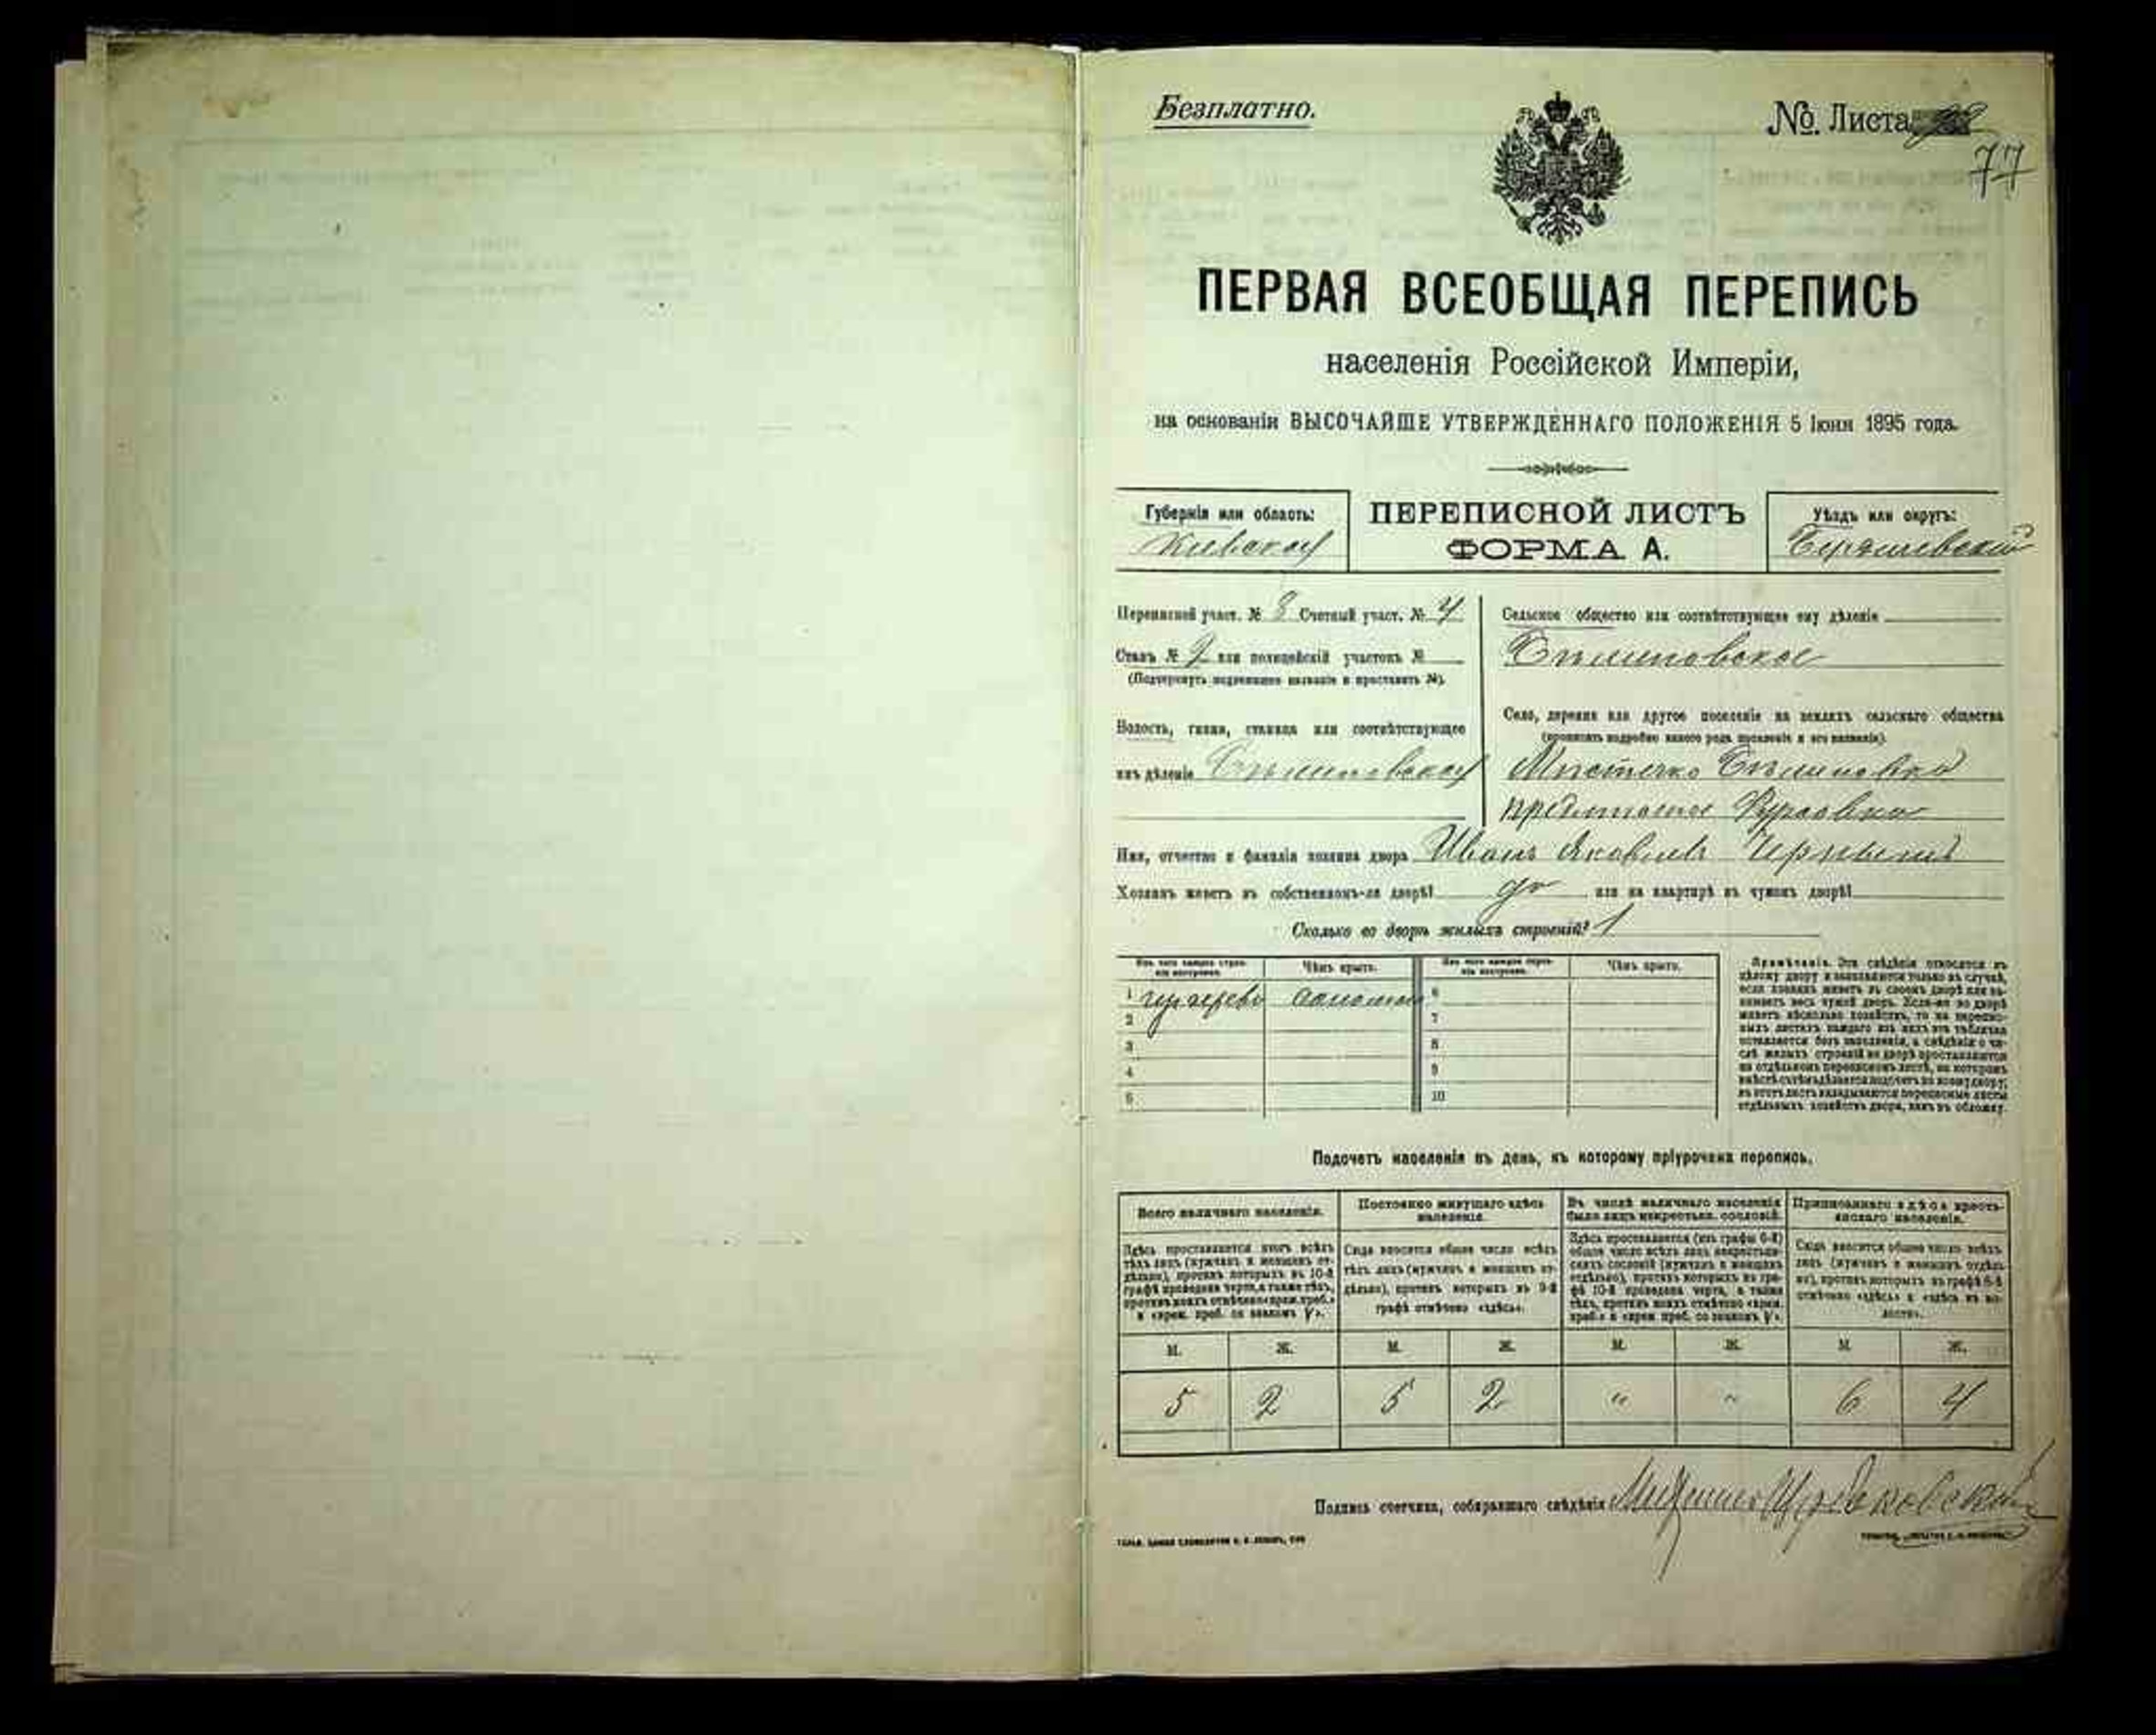 Безплатно.
№ Листа
77
ПЕРВАЯ ВСЕОБЩАЯ ПЕРЕПИСЬ
населенія Россійской Имперіи,
на основаніи ВЫСОЧАЙШЕ УТВЕРЖДЕННАГО ПОЛОЖЕНІЯ 5 Іюня 1895 года.
Губернія или область:
Кіевская
ПЕРЕПИСНОЙ ЛИСТЪ
ФОРМА А.
Уѣздъ или округъ:
Бердичевскій
Переписной участ. № 8 Счетный участ. № 4
Станъ № 2 или полицейскій участокъ №
(Подчеркнуть подлежащее названіе и проставить №).
Волость, гмина, станица или соотвѣтствующее
имъ дѣленіе Бѣлиловская
Сельское общество или соотвѣтствующее ему дѣленіе
Бѣлиловское
Село, деревня или другое поселеніе на земляхъ сельскаго общества
(прописать подробно какого рода поселеніе и его названіе).
Мѣстечко Бѣлиловка
предмѣстье
Имя, отчество и фамилія хозяина двора Иванъ Яковлевъ Чернышъ
Хозяинъ живетъ въ собственномъ-ли дворѣ? да или на квартирѣ въ чужомъ дворѣ?
Сколько во дворѣ жилыхъ строеній? 1
Изъ чего каждое строеніе построено.
Чѣмъ крыто.
Изъ чего каждое строеніе построено.
Чѣмъ крыто.
1 соломою 6
2 7
3 8
4 9
5 10
Примѣчаніе. Эти свѣдѣнія относятся къ
цѣлому двору и заполняются только въ случаѣ,
если хозяинъ живетъ въ своемъ дворѣ или за-
нимаетъ весь чужой дворъ. Если-же во дворѣ
живетъ нѣсколько хозяйствъ, то на перепис-
ныхъ листахъ каждаго изъ нихъ эта табличка
оставляется безъ заполненія, а свѣдѣнія о чи-
слѣ жилыхъ строеній во дворѣ проставляются
на отдѣльномъ переписномъ листѣ, на которомъ
вмѣстѣ съ тѣмъ дѣлается подсчетъ по всему двору;
въ этотъ листъ вкладываются переписные листы
отдѣльныхъ хозяйствъ двора, какъ въ обложку.
Подсчетъ населенія въ день, къ которому пріурочена перепись.
Всего наличнаго населенія.
Постоянно живущаго здѣсь населенія.
Въ числѣ наличнаго населенія было лицъ некрестьян. сословій.
Приписаннаго здѣсь крестьянскаго населенія.
Здѣсь проставляется итогъ всѣхъ
тѣхъ лицъ (мужчинъ и женщинъ от-
дѣльно), противъ которыхъ въ 10-й
графѣ проведена черта, а также тѣхъ,
противъ коихъ отмѣчено «врем. преб.»
и «врем. преб. со знакомъ V».
Сюда вносится общее число всѣхъ
тѣхъ лицъ (мужчинъ и женщинъ от-
дѣльно), противъ которыхъ въ 9-й
графѣ отмѣчено «здѣсь».
Здѣсь проставляется (изъ графы 6-й)
общее число всѣхъ лицъ некрестьян-
скихъ сословій (мужчинъ и женщинъ
отдѣльно), противъ которыхъ въ гра-
фѣ 10-й проведена черта, а также
тѣхъ, противъ коихъ отмѣчено «врем.
преб.» и «врем. преб. со знакомъ V».
Сюда вносится общее число всѣхъ
лицъ (мужчинъ и женщинъ отдѣль-
но), противъ которыхъ въ графѣ 8-й
отмѣчено «здѣсь» и «здѣсь въ во-
лости».
М. Ж. М. Ж. М. Ж. М. Ж.
5 2 5 2 " " 6 4
Подпись счетчика, собиравшаго свѣдѣнія